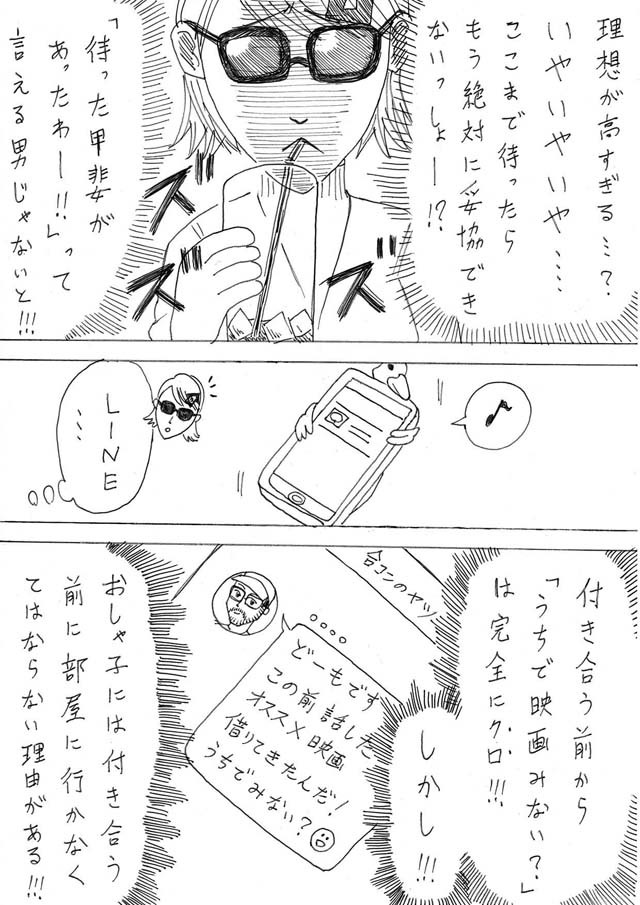 理想が高すぎる…？
いやいやいや……
ここまで待ったら
もう絶対に妥協でき
ないっしょー!?
ズ
ズ
ズ
「待った甲斐が
あったわー!!」って
言える男じゃないと!!!
♪
LINE
…
付き合う前から
「うちで映画みない？」
は完全にクロ!!!
しかし!!!
合コンのヤツ
どーもです
この前話した
オススメ映画
借りてきたんだ！
うちでみない？
おしゃ子には付き合う
前に部屋に行かなく
てはならない理由がある!!!